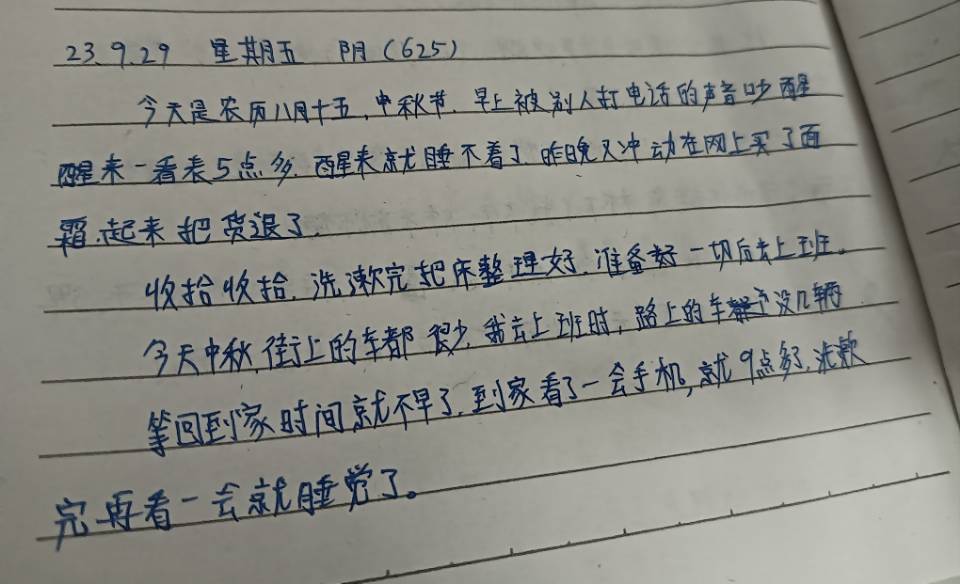 23.9.29 星期五 阴(625)
今天是农历八月十五,中秋节.早上被别人打电话的声音吵醒
醒来一看表5点多.醒来就睡不着了.昨晚又冲动在网上买了面
霜.起来把货退了
收拾收拾.洗漱完把床整理好.准备好一切后去上班。
今天中秋,街上的车都很少.我去上班时,路上的车没几辆
等回到家时间就不早了.到家看了一会手机,就9点多了.洗漱
完再看一会就睡觉了。